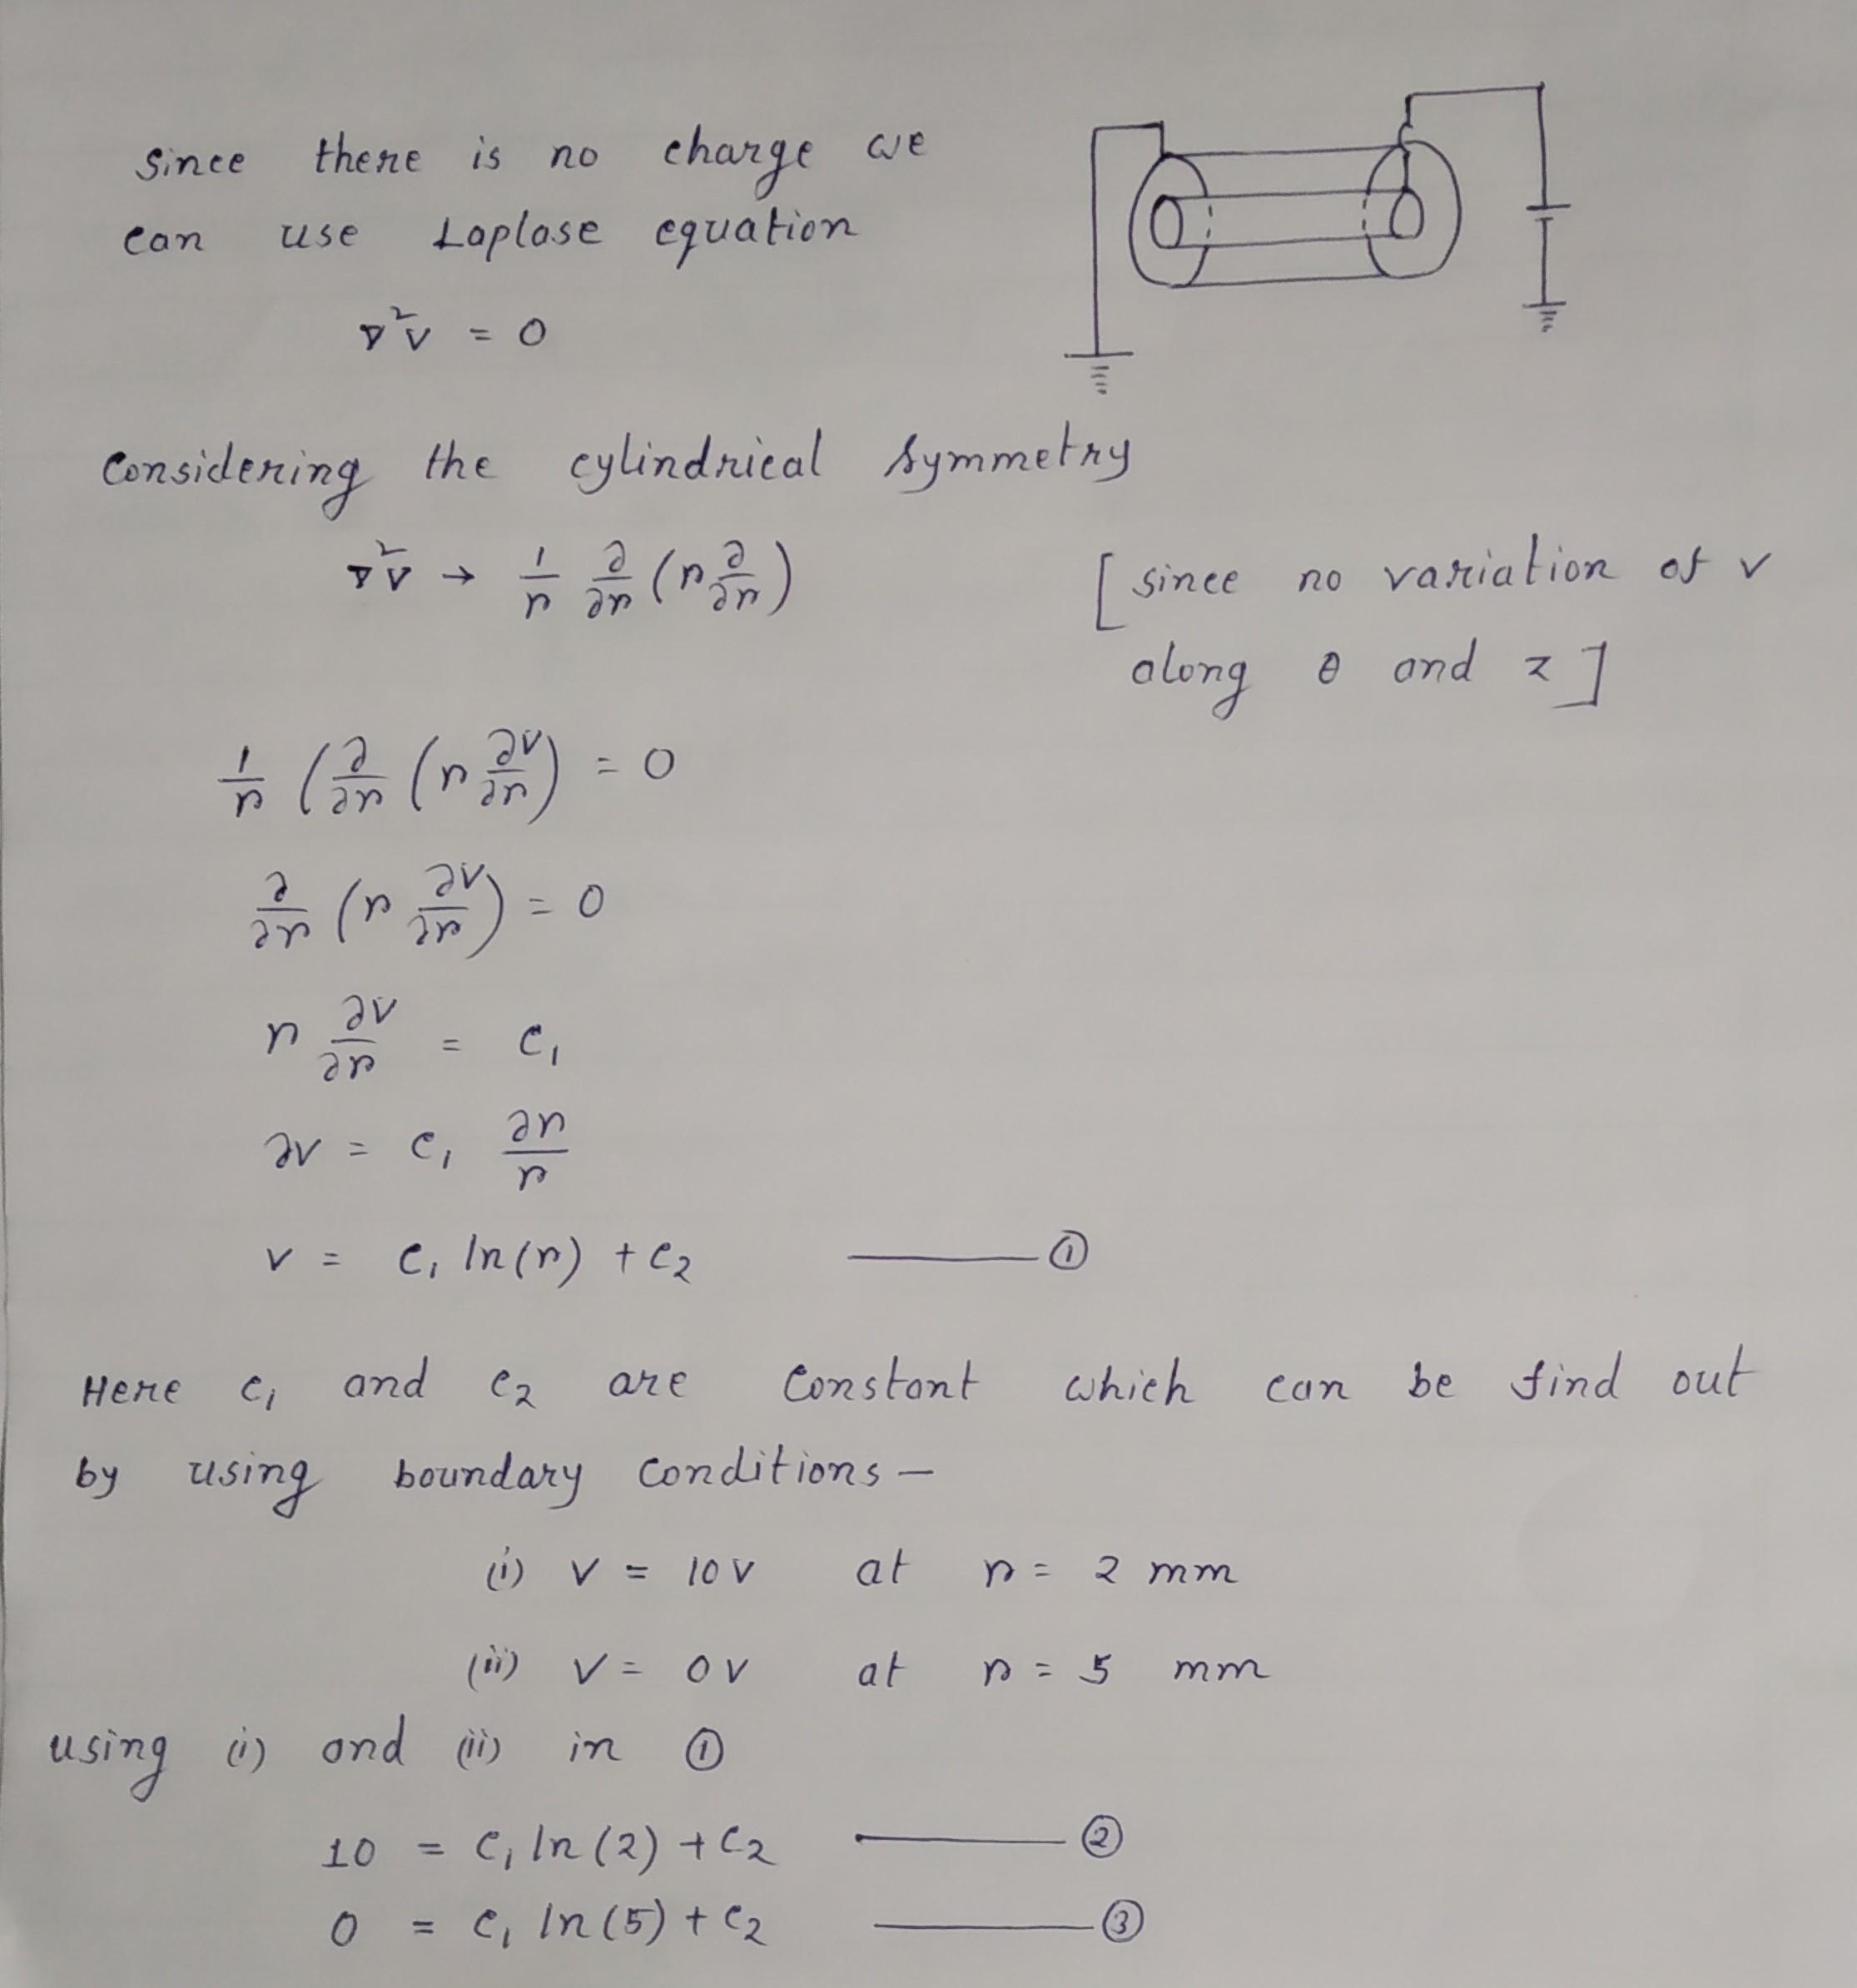 Since there is no charge we
can use Laplase equation
∇²V = 0
Considering the cylindrical symmetry
∇²V → 1/r ∂/∂r (r ∂/∂r) [since no variation of V
along θ and z]
1/r (∂/∂r (r ∂V/∂r) = 0
∂/∂r (r ∂V/∂r) = 0
r ∂V/∂r = C₁
∂V = C₁ ∂r/r
V = C₁ ln(r) + C₂ ——— ①
Here C₁ and C₂ are constant which can be find out
by using boundary conditions —
(i) V = 10V at r = 2 mm
(ii) V = 0V at r = 5 mm
using (i) and (ii) in ①
10 = C₁ ln(2) + C₂ ——— ②
0 = C₁ ln(5) + C₂ ——— ③